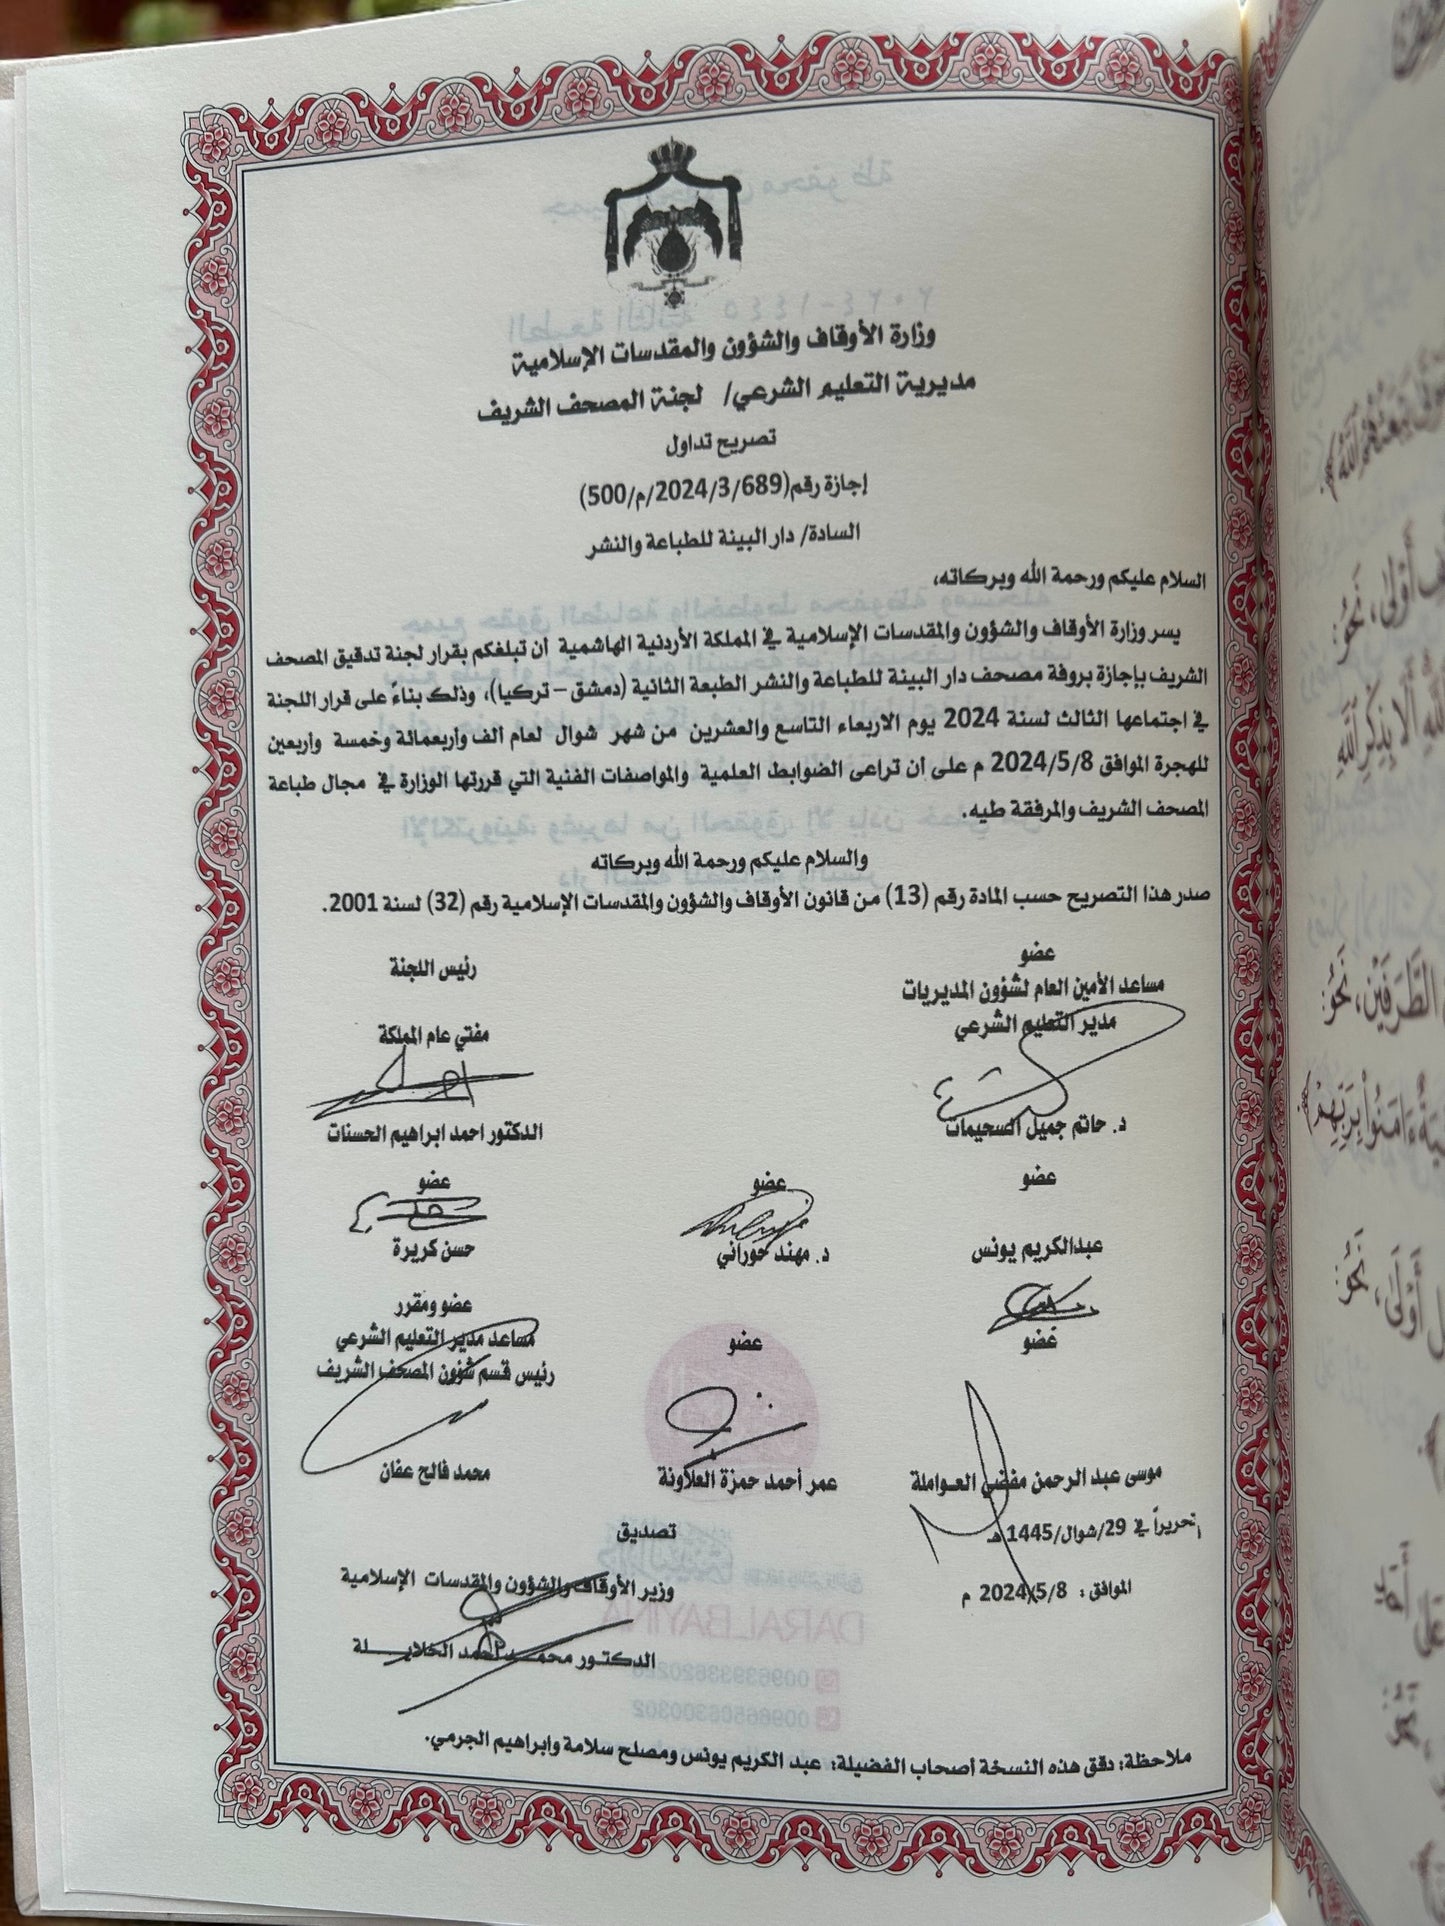 وزارة الأوقاف والشؤون والمقدسات الإسلامية
مديرية التعليم الشرعي/ لجنة المصحف الشريف
تصريح تداول
إجازة رقم(2024/3/689/م/500)
السادة/ دار البينة للطباعة والنشر
السلام عليكم ورحمة الله وبركاته،
يسر وزارة الأوقاف والشؤون والمقدسات الإسلامية في المملكة الأردنية الهاشمية أن تبلغكم بقرار لجنة تدقيق المصحف
الشريف بإجازة بروفة مصحف دار البينة للطباعة والنشر الطبعة الثانية (دمشق – تركيا)، وذلك بناءً على قرار اللجنة
في اجتماعها الثالث لسنة 2024 يوم الاربعاء التاسع والعشرين من شهر شوال لعام الف وأربعمائة وخمسة وأربعين
للهجرة الموافق 2024/5/8 م على ان تراعى الضوابط العلمية والمواصفات الفنية التي قررتها الوزارة في مجال طباعة
المصحف الشريف والمرفقة طيه.
والسلام عليكم ورحمة الله وبركاته
صدر هذا التصريح حسب المادة رقم (13) من قانون الأوقاف والشؤون والمقدسات الإسلامية رقم (32) لسنة 2001.
عضو
رئيس اللجنة
مساعد الأمين العام لشؤون المديريات
مدير التعليم الشرعي
مفتي عام المملكة
د. حاتم جميل السحيمات
الدكتور احمد ابراهيم الحسنات
عضو عضو عضو
عبدالكريم يونس د. مهند حوراني حسن كريرة
عضو عضو عضو ومقرر
مساعد مدير التعليم الشرعي
رئيس قسم شؤون المصحف الشريف
موسى عبد الرحمن مفضي العواملة عمر أحمد حمزة العلاونة محمد فالح عفان
تحريراً في 29/شوال/1445 هـ
تصديق
الموافق: 2024/5/8 م
وزير الأوقاف والشؤون والمقدسات الإسلامية
الدكتور محمد أحمد الخلايلة
ملاحظة: دقق هذه النسخة أصحاب الفضيلة: عبد الكريم يونس ومصلح سلامة وابراهيم الجرمي.